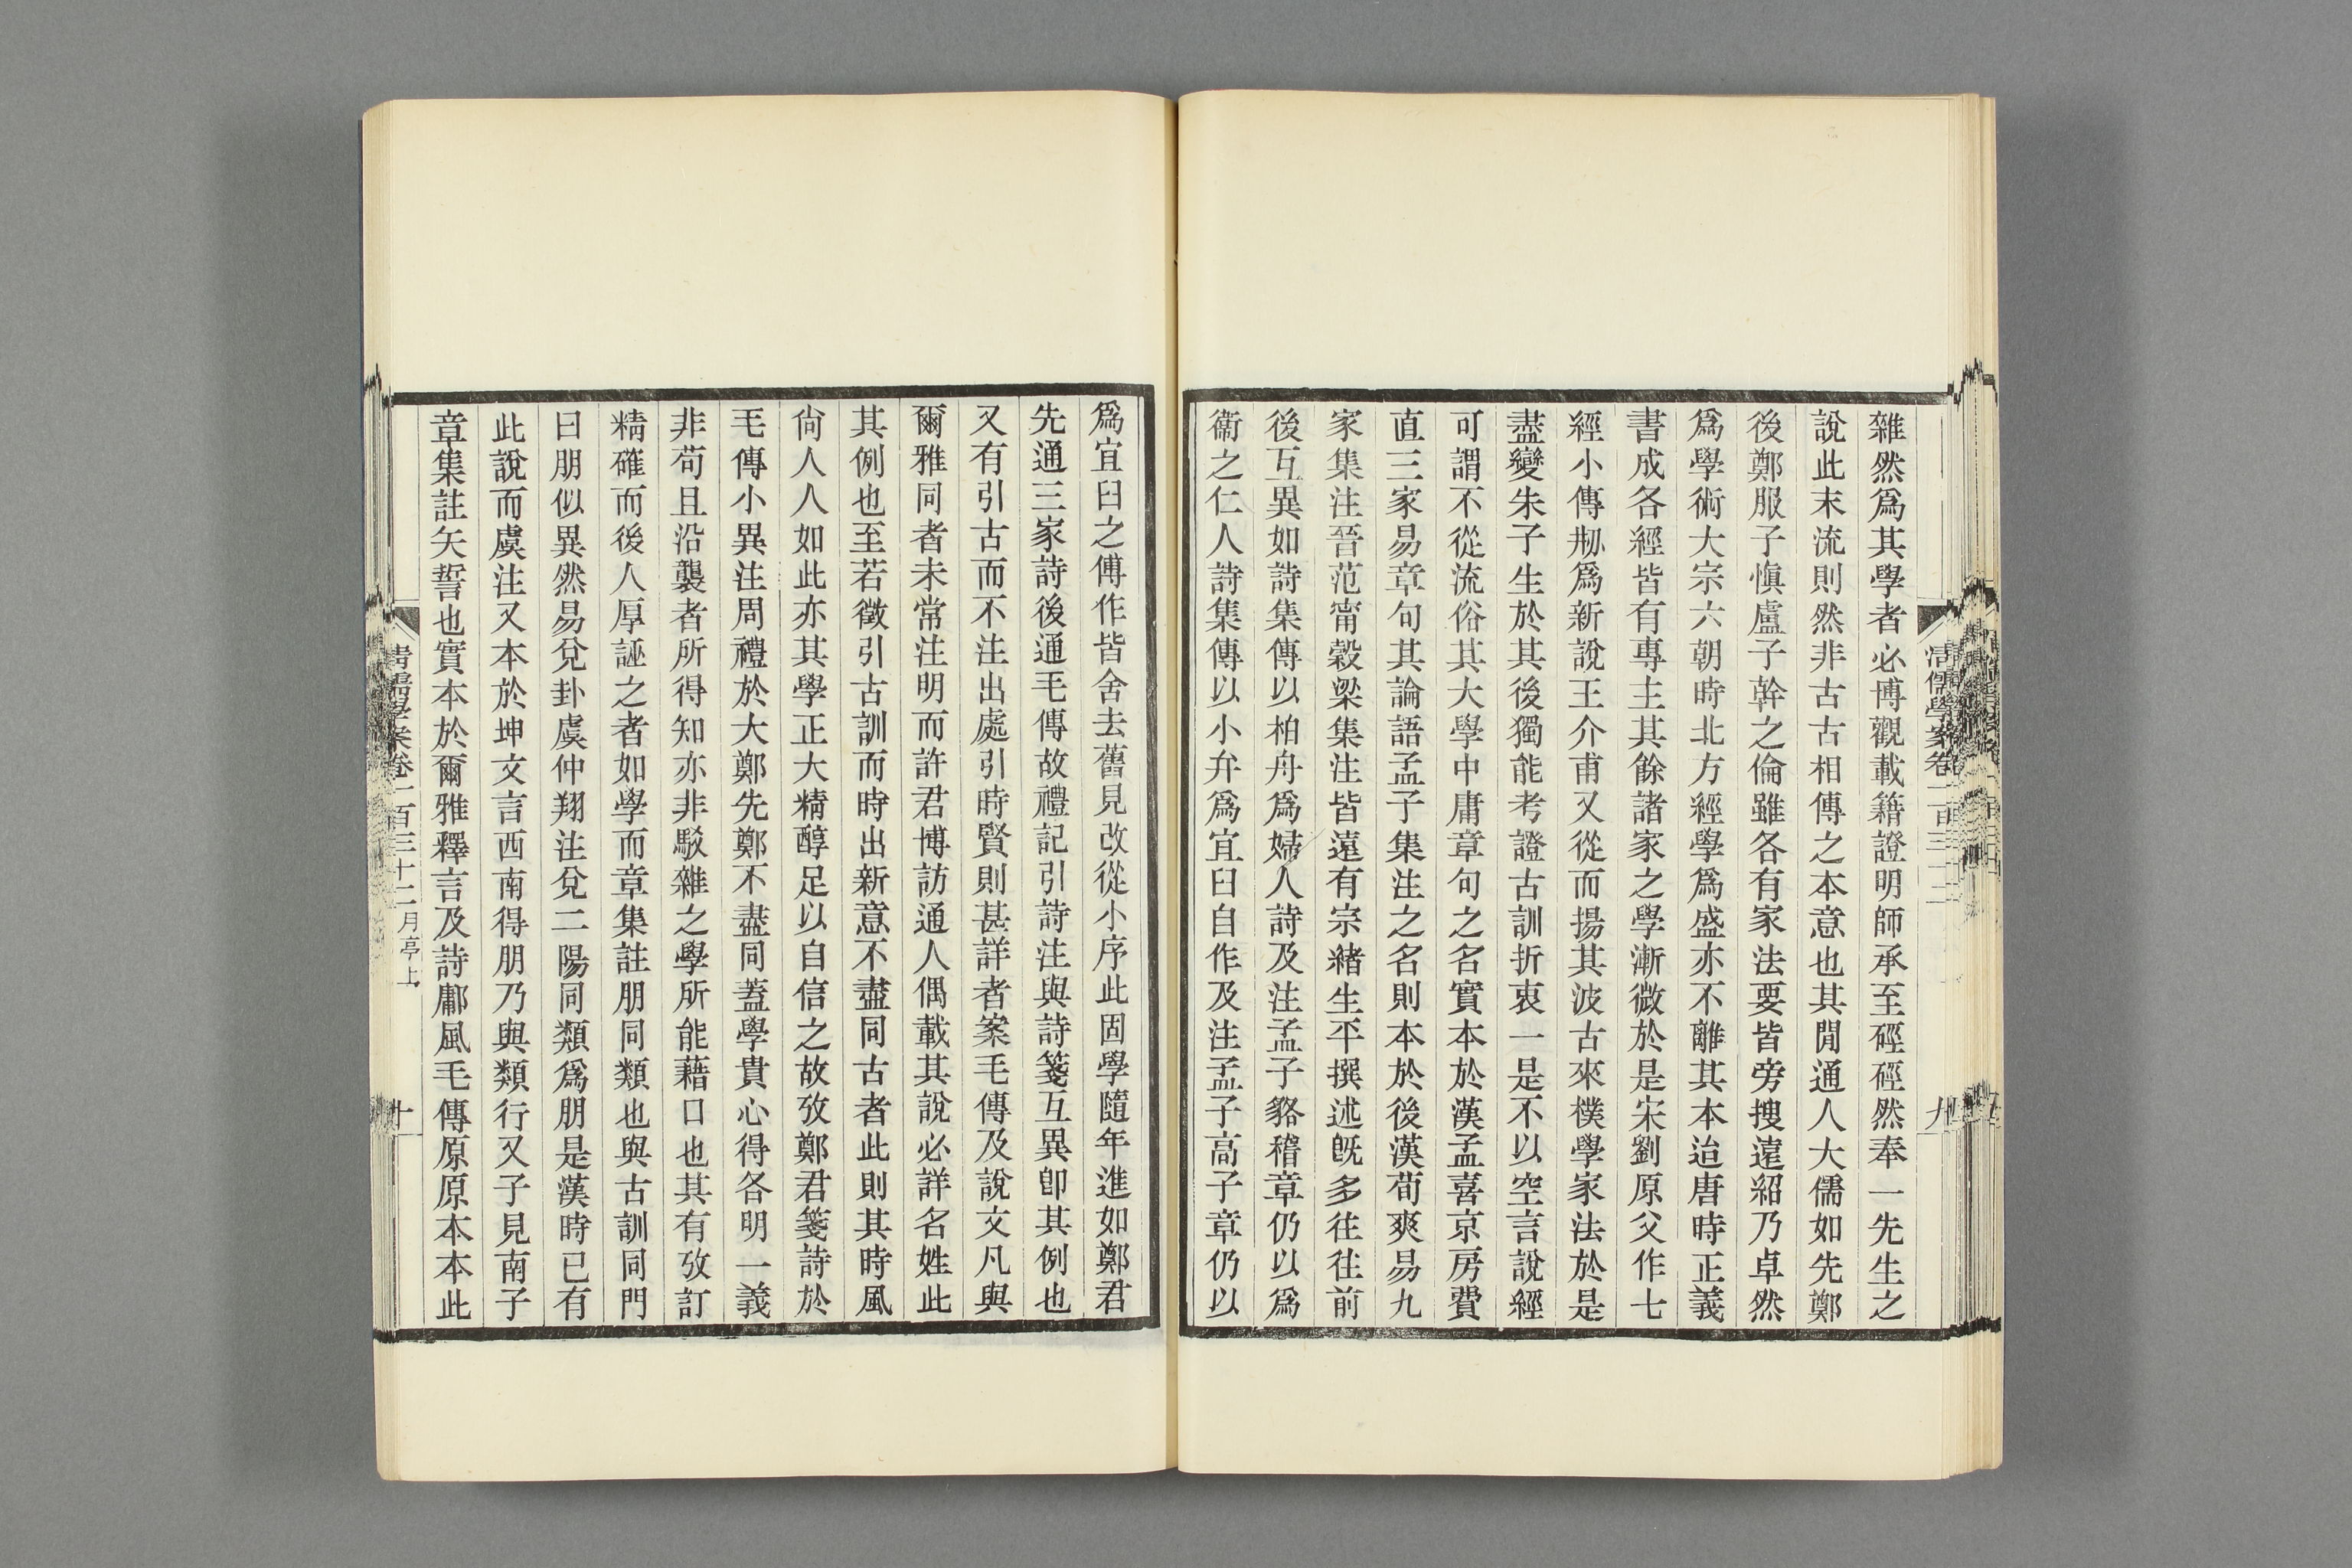 雜然爲其學者必博觀載籍證明師承至硜硜然奉一先生之
說此末流則然非古古相傳之本意也其閒通人大儒如先鄭
後鄭服子愼盧子幹之倫雖各有家法要皆旁搜遠紹乃卓然
爲學術大宗六朝時北方經學爲盛亦不離其本迨唐時正義
書成各經皆有專主其餘諸家之學漸微於是宋劉原父作七
經小傳刱爲新說王介甫又從而揚其波古來樸學家法於是
盡變朱子生於其後獨能考證古訓折衷一是不以空言說經
可謂不從流俗其大學中庸章句之名實本於漢孟喜京房費
直三家易章句其論語孟子集注之名則本於後漢荀爽易九
家集注晉范甯穀梁集注皆遠有宗緒生平撰述旣多往往前
後互異如詩集傳以柏舟爲婦人詩及注孟子貉稽章仍以爲
衞之仁人詩集傳以小弁爲宜臼自作及注孟子高子章仍以
清儒學案卷二百三十二
九
爲宜臼之傅作皆舍去舊見改從小序此固學隨年進如鄭君
先通三家詩後通毛傳故禮記引詩注與詩箋互異卽其例也
又有引古而不注出處引時賢則甚詳者案毛傳及說文凡與
爾雅同者未常注明而許君博訪通人偶載其說必詳名姓此
其例也至若徵引古訓而時出新意不盡同古者此則其時風
尙人人如此亦其學正大精醇足以自信之故攷鄭君箋詩於
毛傳小異注周禮於大鄭先鄭不盡同蓋學貴心得各明一義
非苟且沿襲者所得知亦非駁雜之學所能藉口也其有攷訂
精確而後人厚誣之者如學而章集註朋同類也與古訓同門
曰朋似異然易兌卦虞仲翔注兌二陽同類爲朋是漢時已有
此說而虞注又本於坤文言西南得朋乃與類行又子見南子
章集註矢誓也實本於爾雅釋言及詩鄘風毛傳原原本本此
清儒學案卷二百三十二 月亭上
十